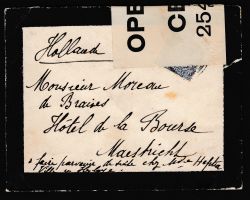 Holland
OPE
CE
254
Monsieur Moreau
de Braises
Hôtel de la Bourse
Maestricht
à faire parvenir de suite chez